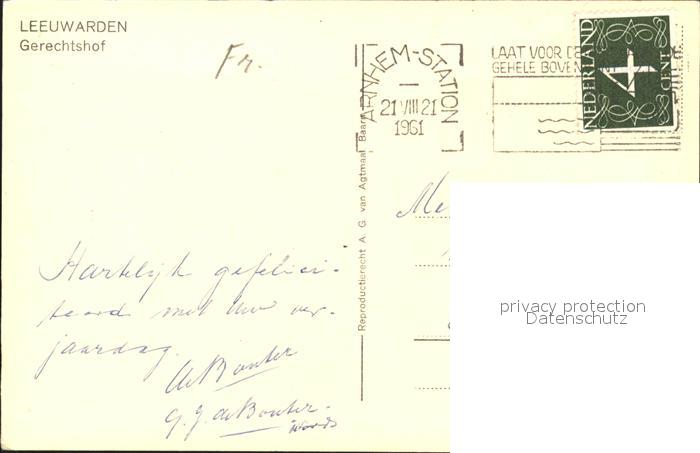 LEEUWARDEN
Gerechtshof
Fr.
ARNHEM-STATION
21 VIII 21
1961
LAAT VOOR DE
GEHELE BOVEN
NEDERLAND
4
CENT
Reproductierecht A. G. van Agtmaal Baarn
Hartelijk gefelici-
teerd met Uw ver-
jaardag.
de Bonter
G. J. de Bonter-
privacy protection
Datenschutz